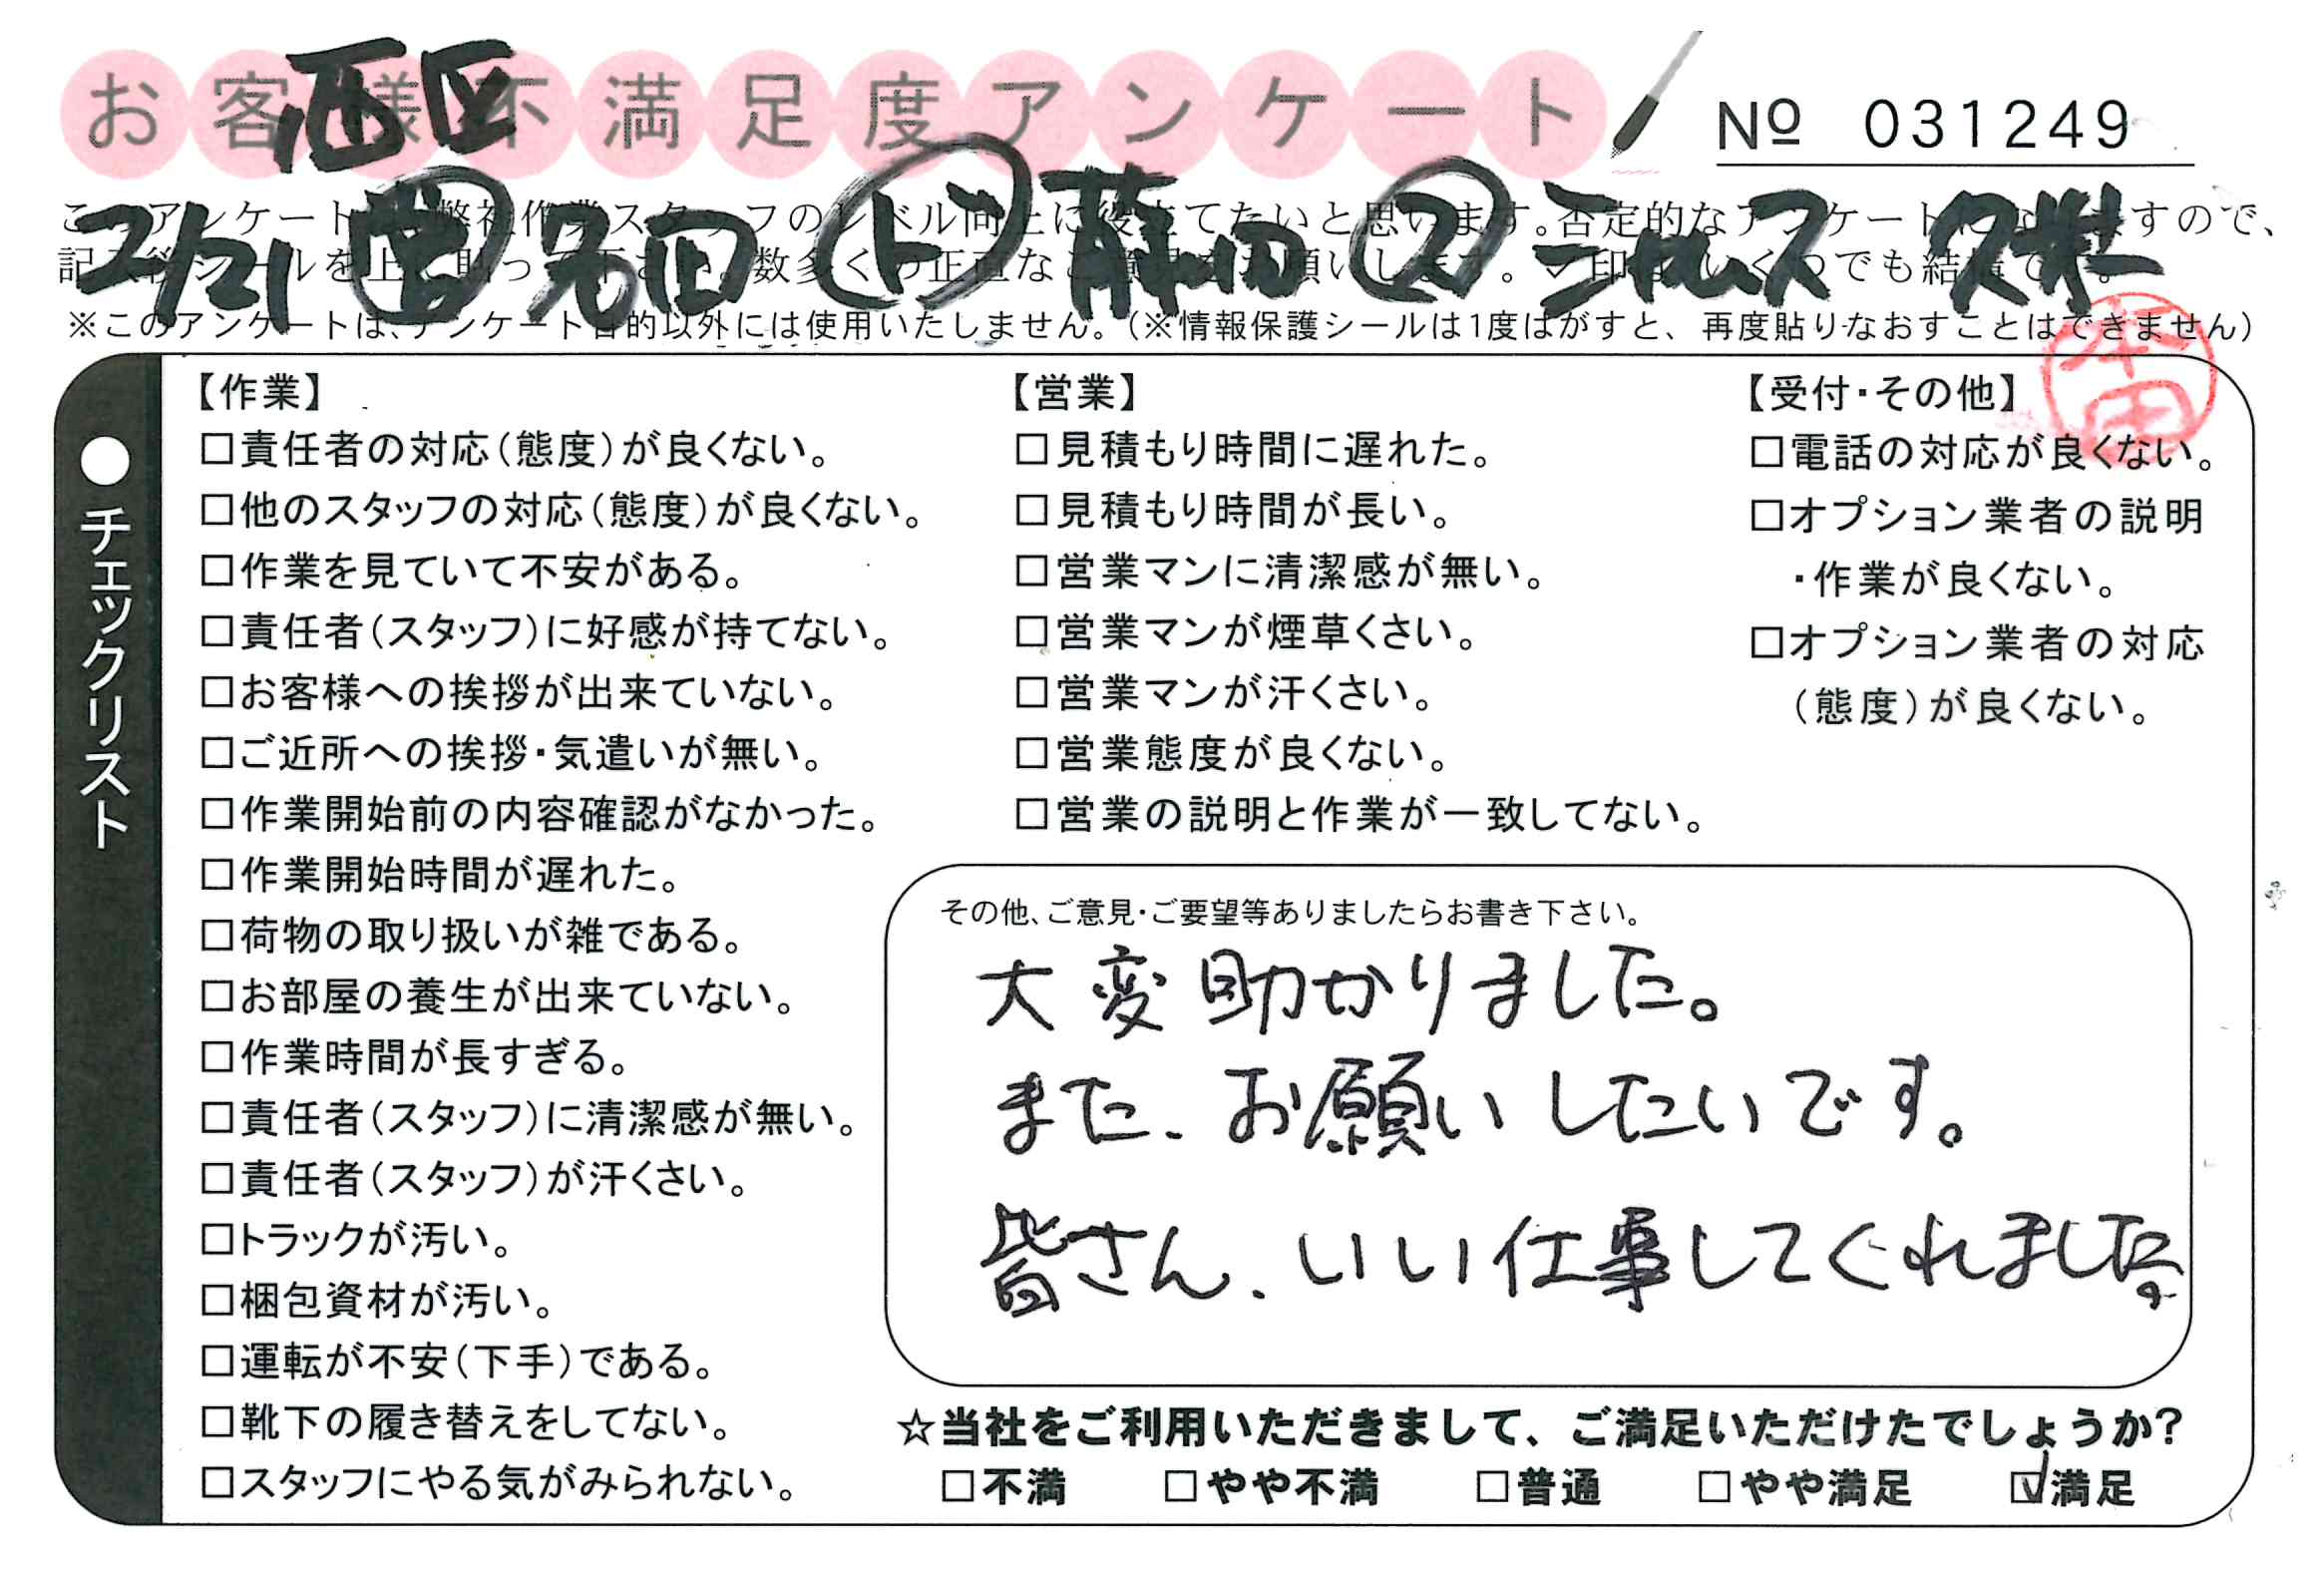 お客様不満足度アンケート
西区
№ 031249
このアンケートは、弊社作業スタッフのレベル向上に役立てたいと思います。否定的なアンケートになりますので、
記入後シールを上に貼って下さい。数多くの正直なご意見をお願いします。✓印はいくつでも結構です。
2/21 営 兄田 ド 藤田 ス シャルース 久米
※このアンケートは、アンケート目的以外には使用いたしません。(※情報保護シールは1度はがすと、再度貼りなおすことはできません)
本田
●チェックリスト
【作業】
□責任者の対応(態度)が良くない。
□他のスタッフの対応(態度)が良くない。
□作業を見ていて不安がある。
□責任者(スタッフ)に好感が持てない。
□お客様への挨拶が出来ていない。
□ご近所への挨拶・気遣いが無い。
□作業開始前の内容確認がなかった。
□作業開始時間が遅れた。
□荷物の取り扱いが雑である。
□お部屋の養生が出来ていない。
□作業時間が長すぎる。
□責任者(スタッフ)に清潔感が無い。
□責任者(スタッフ)が汗くさい。
□トラックが汚い。
□梱包資材が汚い。
□運転が不安(下手)である。
□靴下の履き替えをしてない。
□スタッフにやる気がみられない。
【営業】
□見積もり時間に遅れた。
□見積もり時間が長い。
□営業マンに清潔感が無い。
□営業マンが煙草くさい。
□営業マンが汗くさい。
□営業態度が良くない。
□営業の説明と作業が一致してない。
【受付・その他】
□電話の対応が良くない。
□オプション業者の説明
・作業が良くない。
□オプション業者の対応
(態度)が良くない。
その他、ご意見・ご要望等ありましたらお書き下さい。
大変助かりました。
また、お願いしたいです。
皆さん、いい仕事してくれました。
☆当社をご利用いただきまして、ご満足いただけたでしょうか?
□不満 □やや不満 □普通 □やや満足 ☑満足